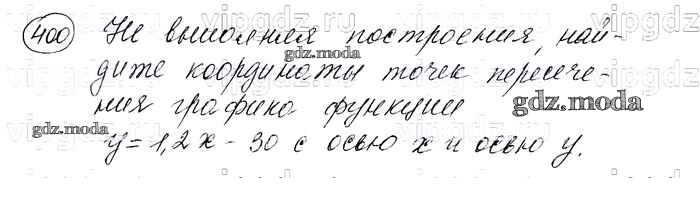 400 Не выполняя построения, най-
дите координаты точек пересече-
ния графика функции
y = 1,2x - 30 с осью x и осью y.
gdz.moda
gdz.moda
gdz.moda